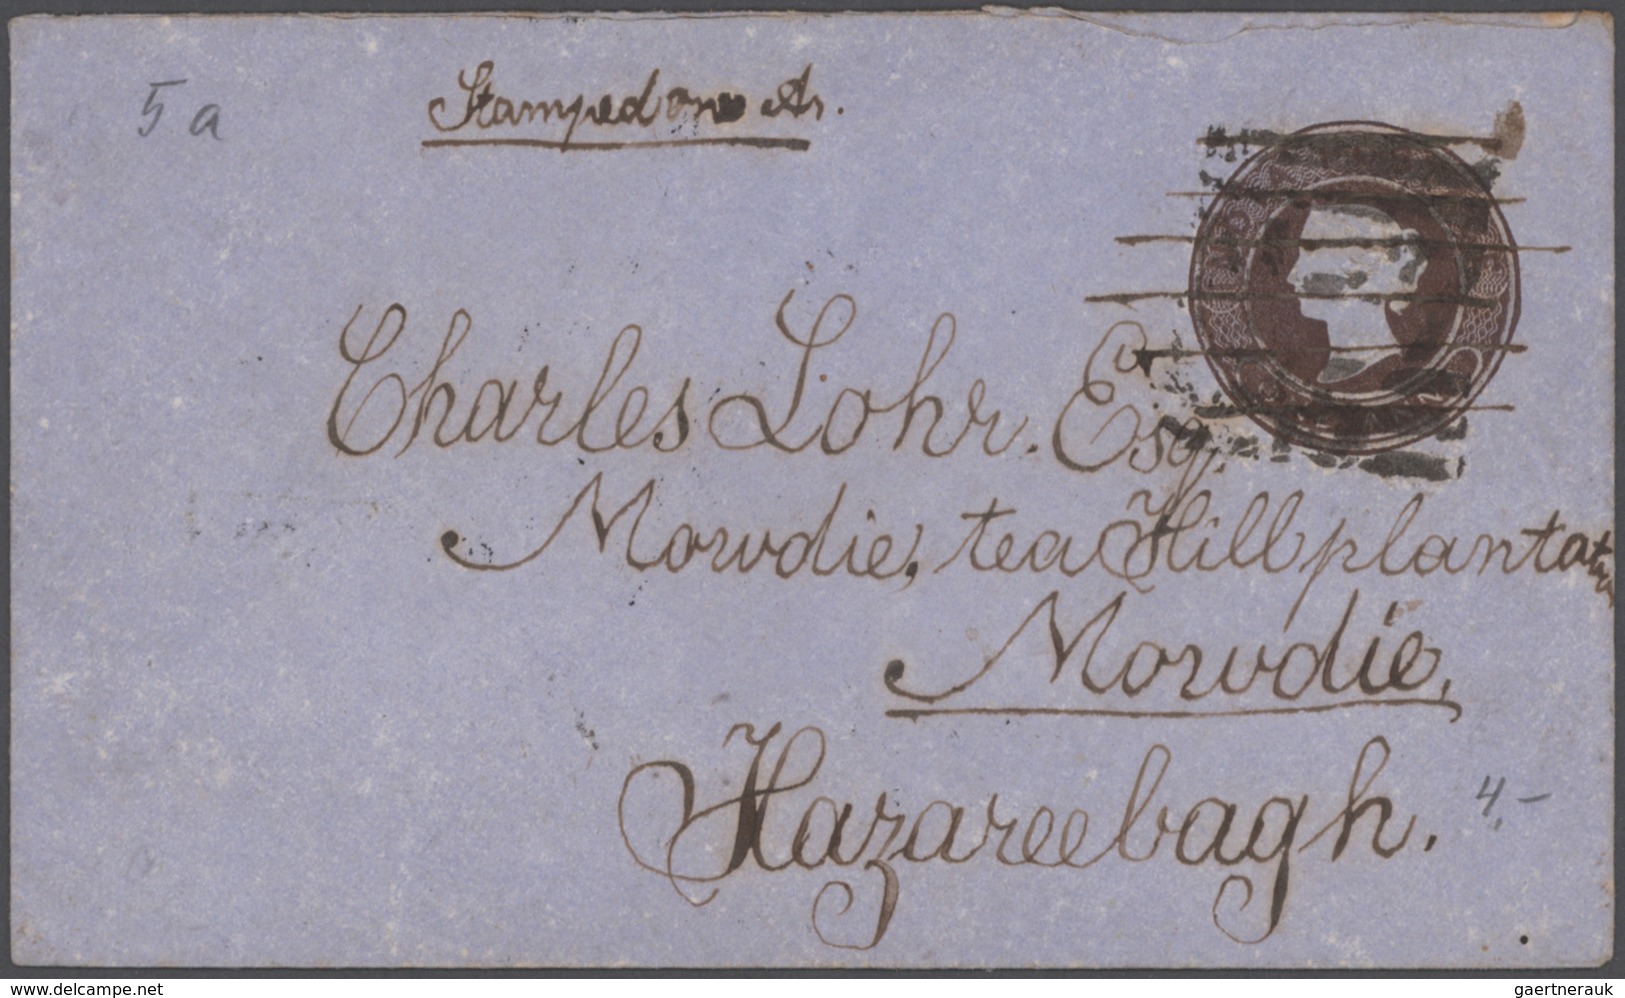 5 a
Stamped one As.
Charles Lohr. Esq.
Mowdie, tea Hill plantation
Mowdie,
Hazareebagh.
4,-
www.delcampe.net
gaertnerauk